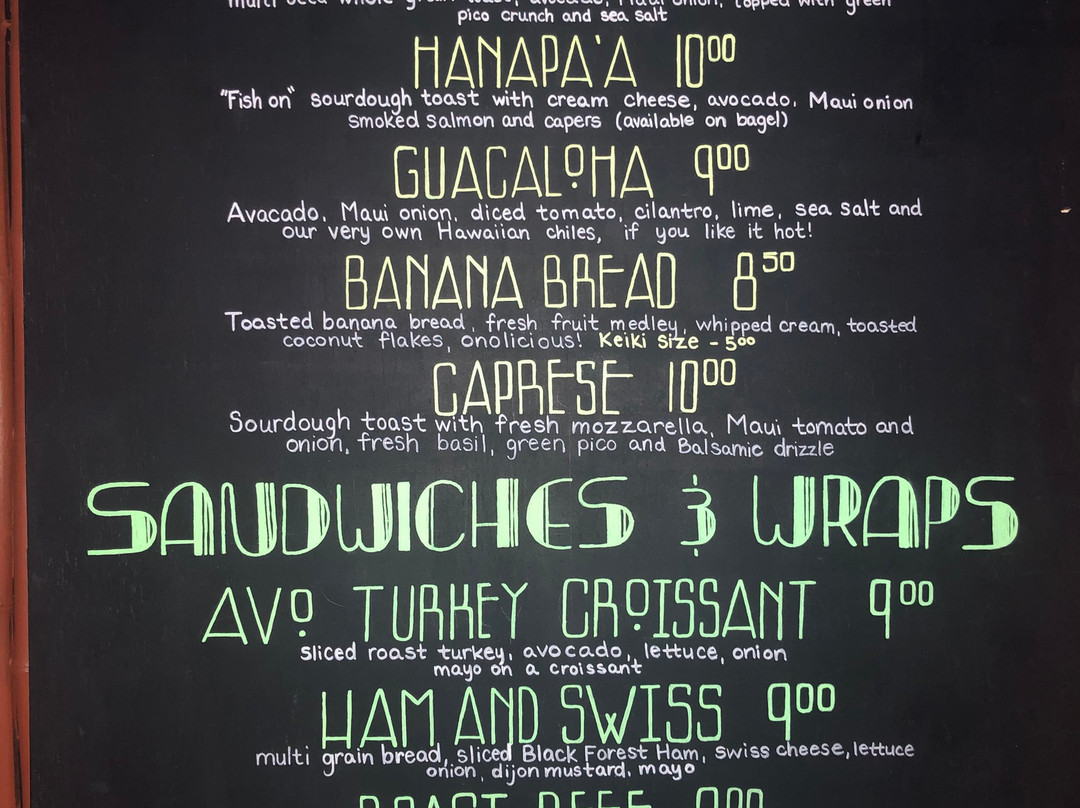 multi seed whole grain toast, avocado, Maui onion, topped with green
pico crunch and sea salt
HANAPA'A 10⁰⁰
"Fish on" sourdough toast with cream cheese, avocado, Maui onion
smoked salmon and capers (available on bagel)
GUACALOHA 9⁰⁰
Avacado, Maui onion, diced tomato, cilantro, lime, sea salt and
our very own Hawaiian chiles, if you like it hot!
BANANA BREAD 8⁵⁰
Toasted banana bread, fresh fruit medley, whipped cream, toasted
coconut flakes, onolicious! Keiki Size - 5⁰⁰
CAPRESE 10⁰⁰
Sourdough toast with fresh mozzarella, Maui tomato and
onion, fresh basil, green pico and Balsamic drizzle
SANDWICHES & WRAPS
AVO TURKEY CROISSANT 9⁰⁰
sliced roast turkey, avocado, lettuce, onion
mayo on a croissant
HAM AND SWISS 9⁰⁰
multi grain bread, sliced Black Forest Ham, swiss cheese, lettuce
onion, dijon mustard, mayo
ROAST BEEF 9⁰⁰